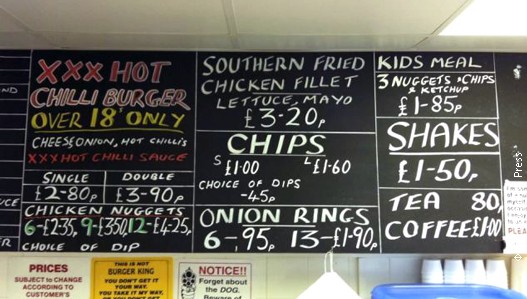 XXX HOT
CHILLI BURGER
OVER 18' ONLY
CHEESE ONION, HOT CHILLI'S
XXX HOT CHILLI SAUCE
SINGLE DOUBLE
£2-80p £3-90p
CHICKEN NUGGETS
6-£2.35, 9-£3.50, 12-£4-25p
CHOICE OF DIP
SOUTHERN FRIED
CHICKEN FILLET
LETTUCE, MAYO
£3-20p
CHIPS
S £1.00 L £1.60
CHOICE OF DIPS
-45p
ONION RINGS
6-.95p 13-£1-90p
KIDS MEAL
3 NUGGETS & CHIPS
& KETCHUP
£1-85p
SHAKES
£1-50p
TEA 80p
COFFEE £1.00
PRICES
SUBJECT TO CHANGE
ACCORDING TO
CUSTOMER'S
THIS IS NOT
BURGER KING
YOU DON'T GET IT
YOUR WAY.
YOU TAKE IT MY WAY,
NOTICE!!
Forget about
the DOG.
Beware of
Press